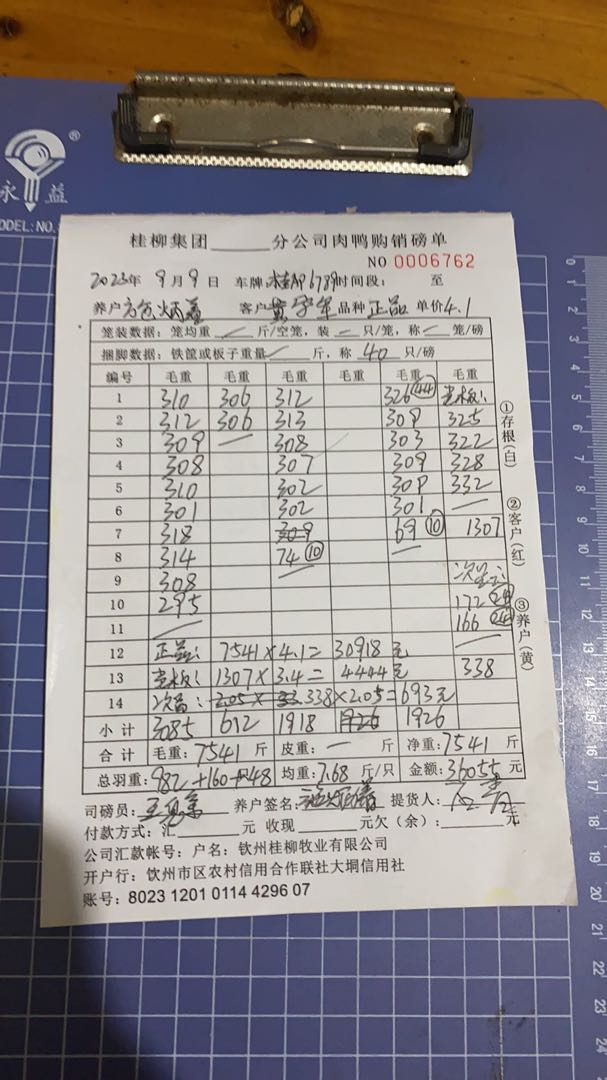 永 益 ®
MODEL:NO.
桂柳集团 分公司肉鸭购销磅单
NO 0006762
2023年 9月9日 车牌:桂AP6789时间段: 至
养户 客户黄学军品种正品 单价4.1
笼装数据:笼均重 — 斤/空笼,装 — 只/笼,称 — 笼/磅
捆脚数据:铁筐或板子重量 — 斤,称 40 只/磅
编号 毛重 毛重 毛重 毛重 毛重 毛重
1 310 306 312 326(44)
2 312 306 313 308 325
3 309 — 308 303 322
4 308 307 309 328
5 310 302 308 332
6 301 302 301 —
7 318 309 69(10) 1307
8 314 74(10) —
9 308 —
10 295 172(24)
11 — 166(24)
12 正品: 7541×4.1= 30918元 —
13 1307×3.4= 4444元 338
14 338×2.05=693元
小计 3085 612 1918 1926 1926
合计 毛重:7541 斤 皮重: — 斤 净重:7541 斤
总羽重:982+160+48 均重:7.68 斤/只 金额:36055 元
司磅员: 养户签名: 提货人:
付款方式:汇 元 收现 元欠(余): 元
公司汇款帐号:户名:钦州桂柳牧业有限公司
开户行:钦州市区农村信用合作联社大垌信用社
账号:8023 1201 0114 4296 07
①存根(白)
②客户(红)
③养户(黄)
0
1
2
3
4
5
6
7
8
9
10
11
12
13
14
15
16
17
18
19
20
21
22
23
24